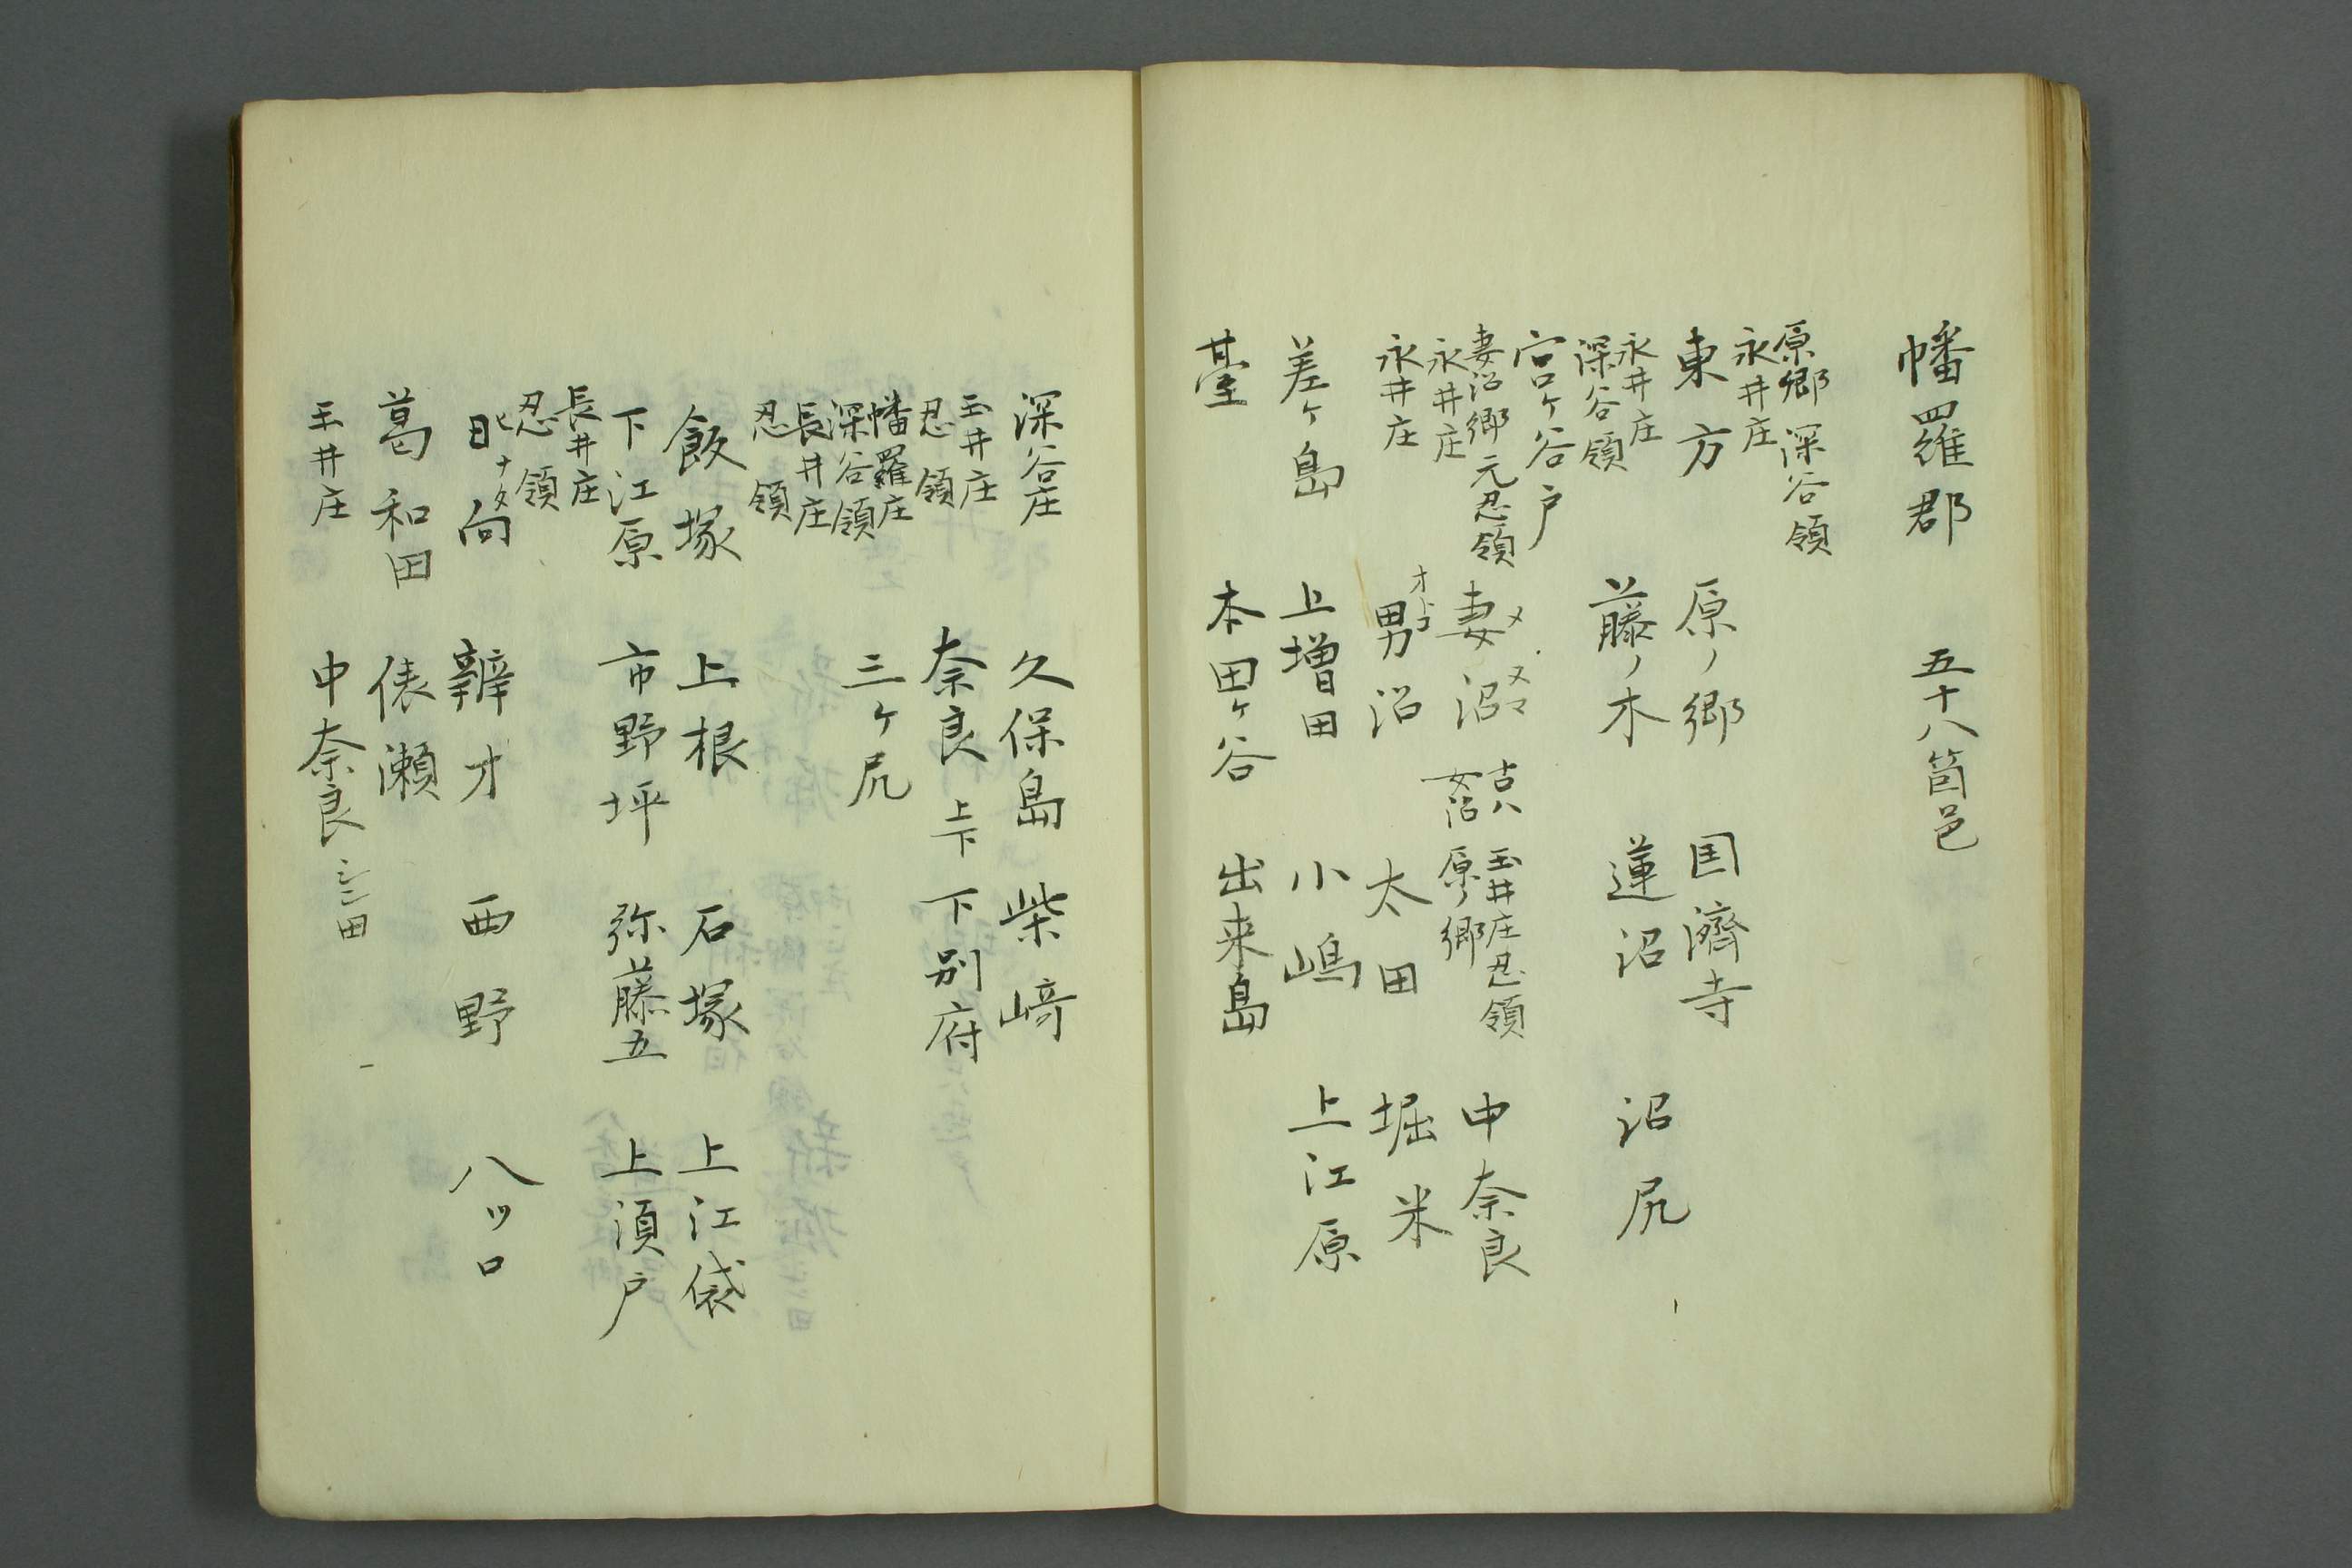 幡羅郡　五十八箇邑
原郷　深谷領
永井庄
東方　原ノ郷　国濟寺
永井庄
深谷領　藤ノ木　蓮沼　沼尻
宮ヶ谷戸
妻沼郷　元忍領
永井庄　妻沼　メ　ヌマ　古ハ女沼　玉井庄忍領　原ノ郷　中奈良
永井庄　男沼　オトコ　太田　堀米
差ヶ島　上増田　小嶋　上江原
臺　本田ヶ谷　出来島
深谷庄　久保島　柴﨑
玉井庄
忍領　奈良　上下　下別府
幡羅庄
深谷領　三ヶ尻
長井庄
忍領
飯塚　上根　石塚　上江袋
下江原　市野坪　弥藤五　上湏戸
長井庄
忍領
日向　ヒナタ　辨才　西野　八ツ口
葛和田　俵瀬
玉井庄　中奈良　シン田